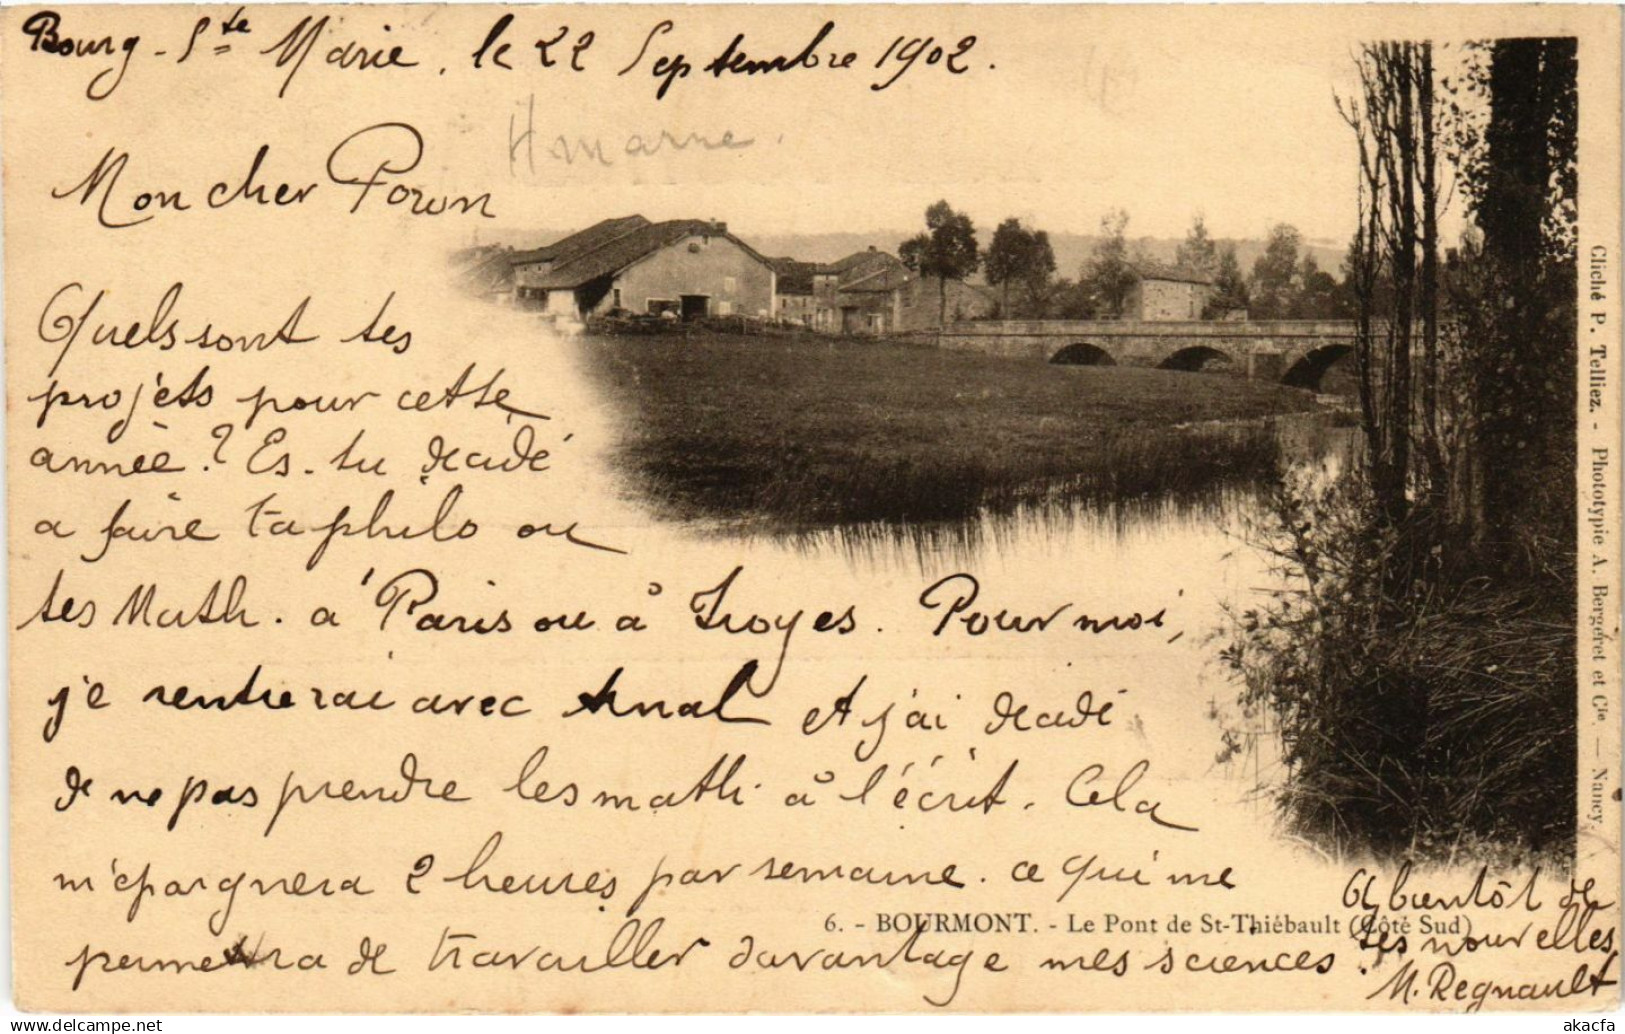 Bourg-Ste Marie, le 22 Septembre 1902.
H marne.
Mon cher Poron
Quels sont tes
projets pour cette
année? Es-tu décidé
a faire ta philo ou
tes Math. à Paris ou à Troyes. Pour moi,
je rentrerai avec et j'ai décidé
de ne pas prendre les math à l'écrit. Cela
m'épargnera 2 heures par semaine. ce qui me
permettra de travailler davantage mes sciences.
bientôt de
tes nouvelles
M. Regnault
6. - BOURMONT. - Le Pont de St-Thiébault (Côté Sud)
Cliché P. Telliez. - Phototypie A. Bergeret et Cie. — Nancy.
www.delcampe.net
akacfa